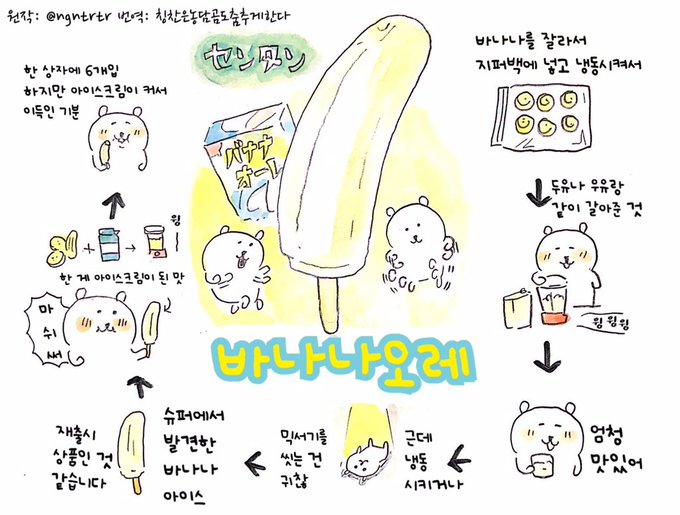 원작: @ngntrtr 번역: 칭찬은농담곰도춤추게한다
センタン
バナナ
オーレ
바나나오레
바나나를 잘라서
지퍼백에 넣고 냉동시켜서
두유나 우유랑
같이 갈아준 것
윙윙윙
엄청
맛있어
근데
냉동
시키거나
믹서기를
씻는 건
귀찮
슈퍼에서
발견한
바나나
아이스
재출시
상품인 것
같습니다
마
쉬
써
한 게 아이스크림이 된 맛
+
윙
한 상자에 6개입
하지만 아이스크림이 커서
이득인 기분